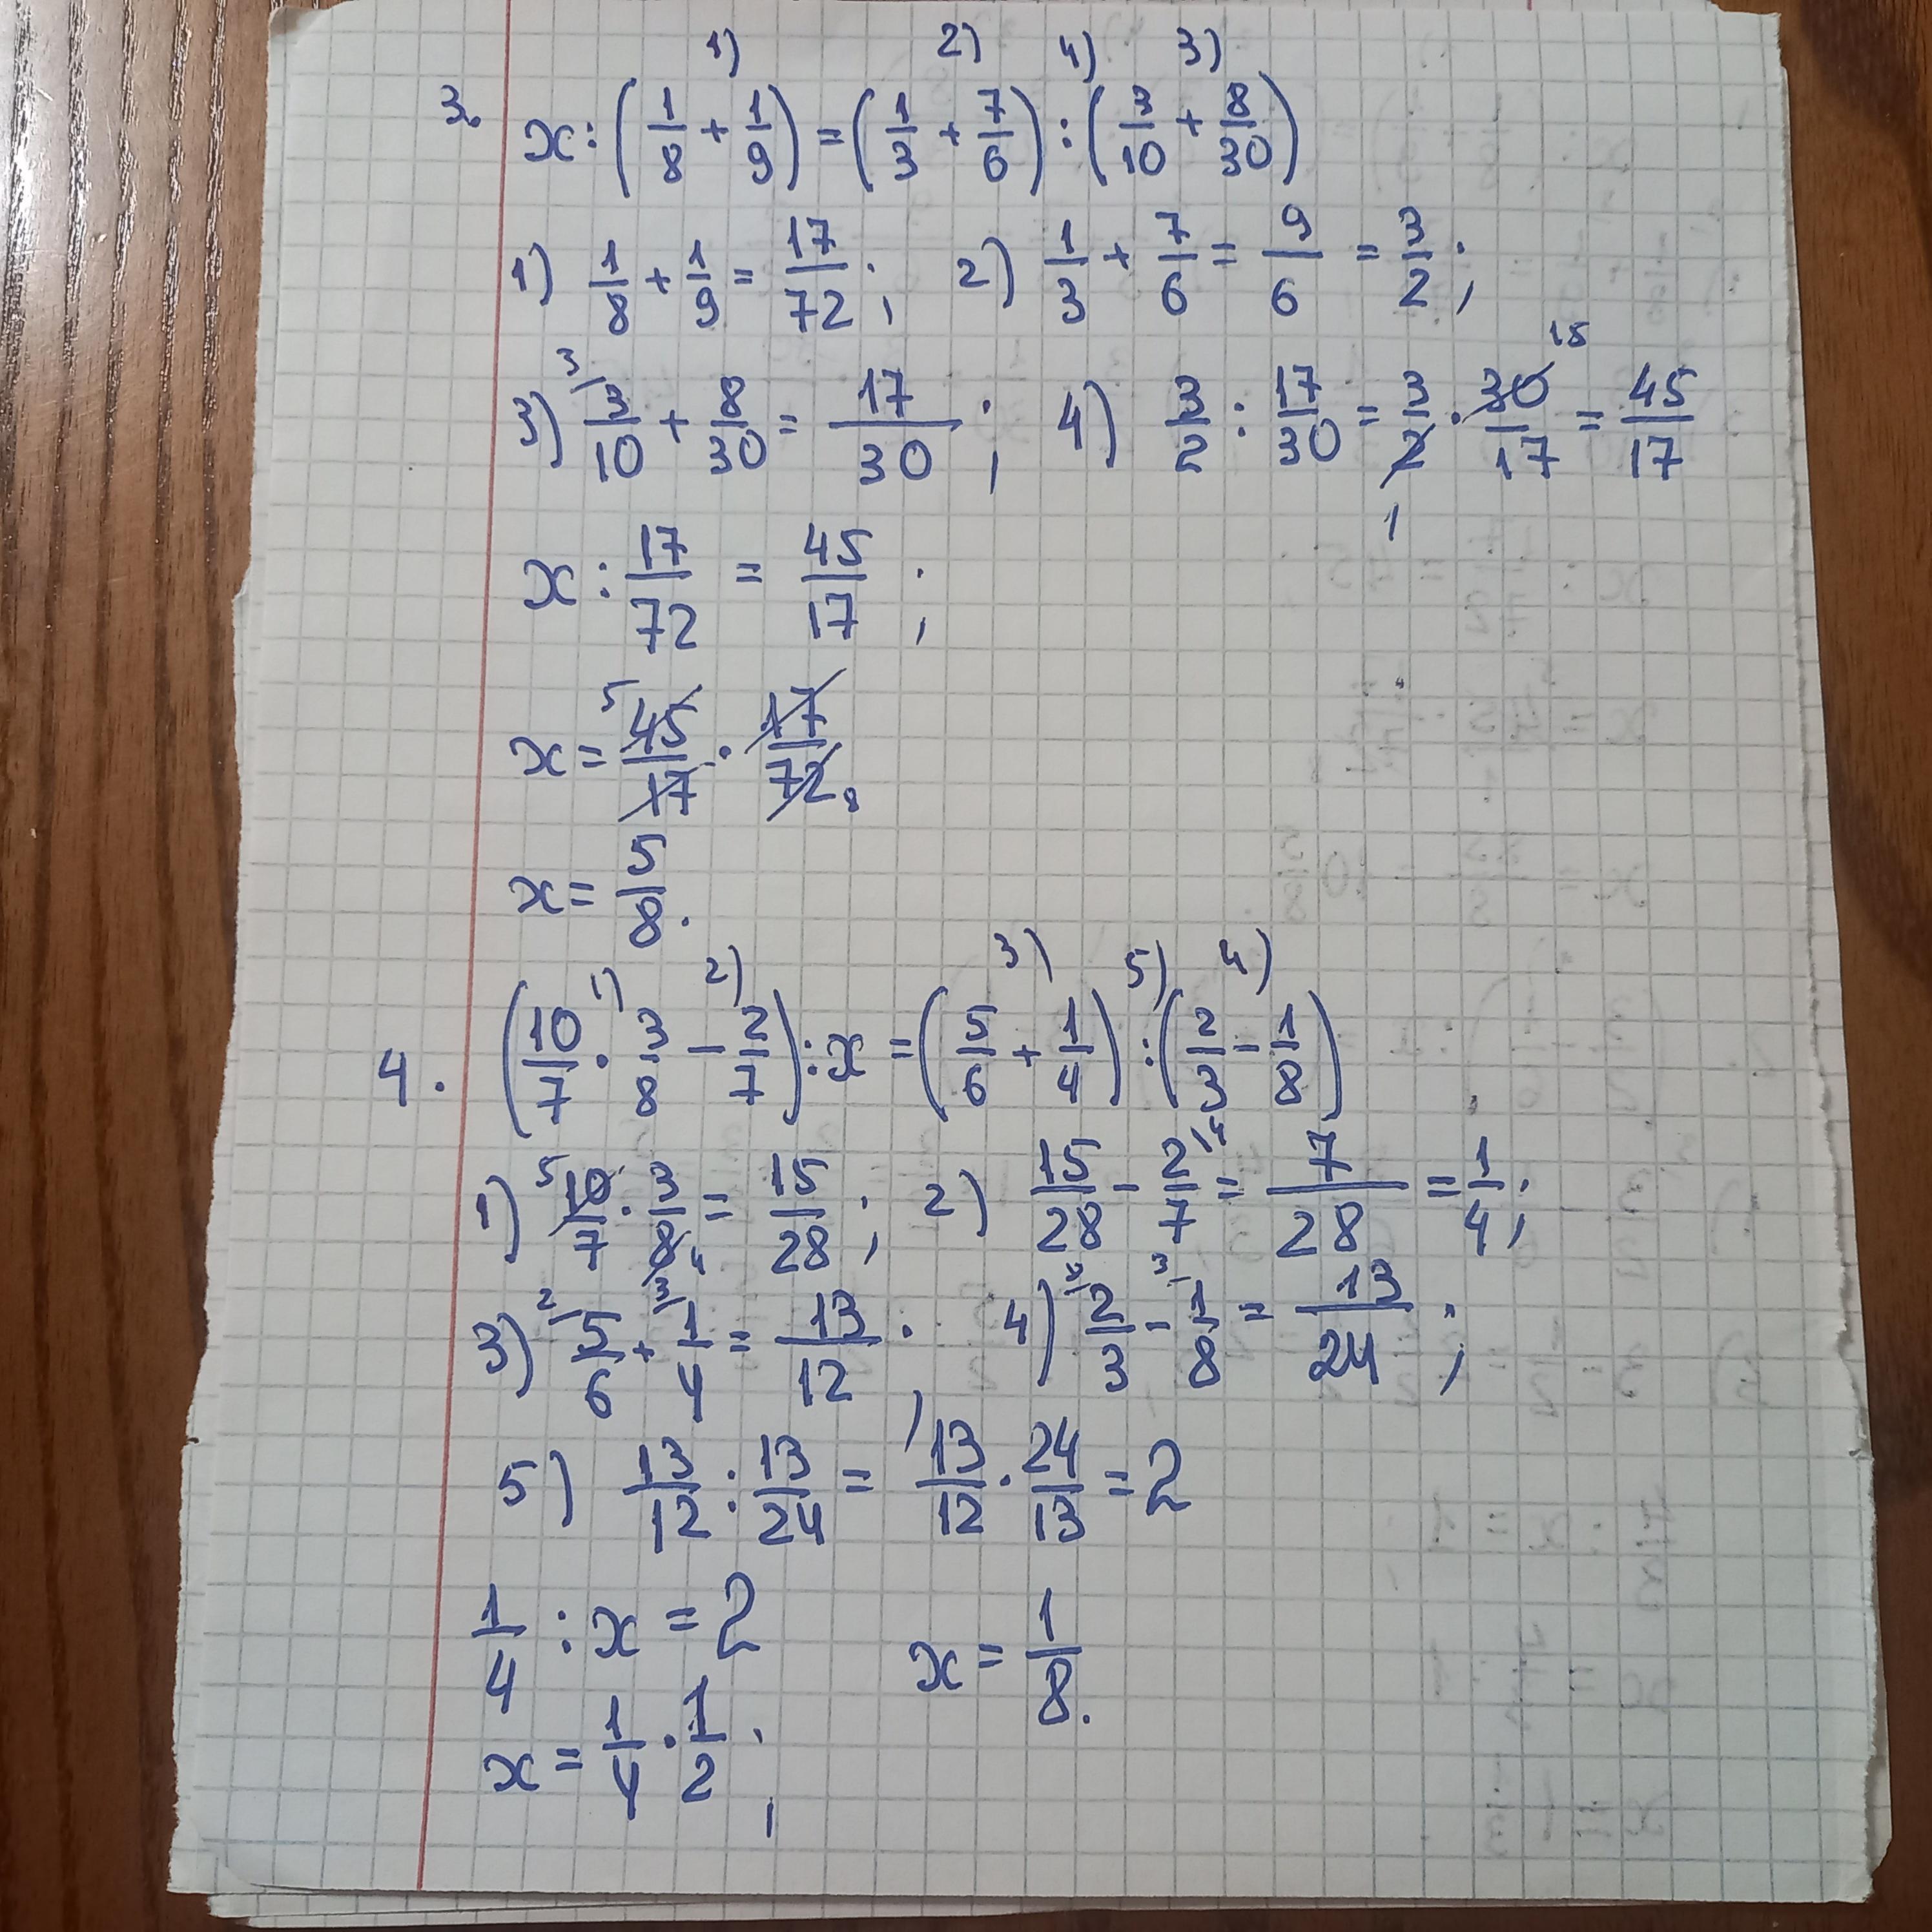 3.
x : (1/8 + 1/9) = (1/3 + 7/6) : (3/10 + 8/30)
1) 1/8 + 1/9 = 17/72; 2) 1/3 + 7/6 = 9/6 = 3/2;
3) 3/10 + 8/30 = 17/30; 4) 3/2 : 17/30 = 3/2 · 30/17 = 45/17
x : 17/72 = 45/17;
x = 45/17 · 17/72
x = 5/8.
4.
(10/7 · 3/8 - 2/7) : x = (5/6 + 1/4) : (2/3 - 1/8)
1) 10/7 · 3/8 = 15/28; 2) 15/28 - 2/7 = 7/28 = 1/4;
3) 5/6 + 1/4 = 13/12; 4) 2/3 - 1/8 = 13/24;
5) 13/12 : 13/24 = 13/12 · 24/13 = 2
1/4 : x = 2
x = 1/4 · 1/2; x = 1/8.